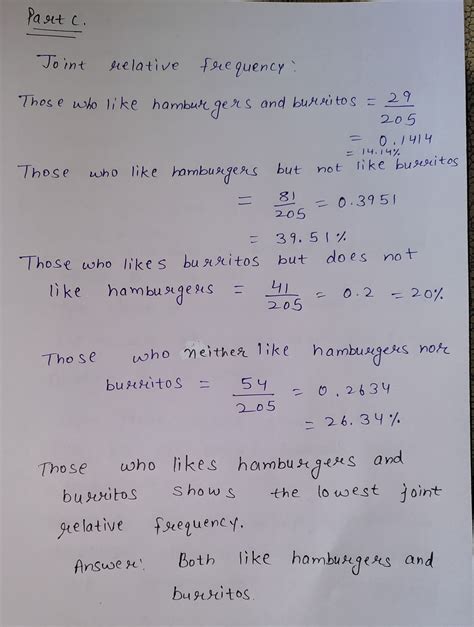 Part C.
Joint relative frequency:
Those who like hamburgers and burritos = 29/205
= 0.1414
= 14.14%
Those who like hamburgers but not like burritos
= 81/205 = 0.3951
= 39.51%
Those who likes burritos but does not
like hamburgers = 41/205 = 0.2 = 20%
Those who neither like hamburgers nor
burritos = 54/205 = 0.2634
= 26.34%
Those who likes hamburgers and
burritos shows the lowest joint
relative frequency.
Answer: Both like hamburgers and
burritos.